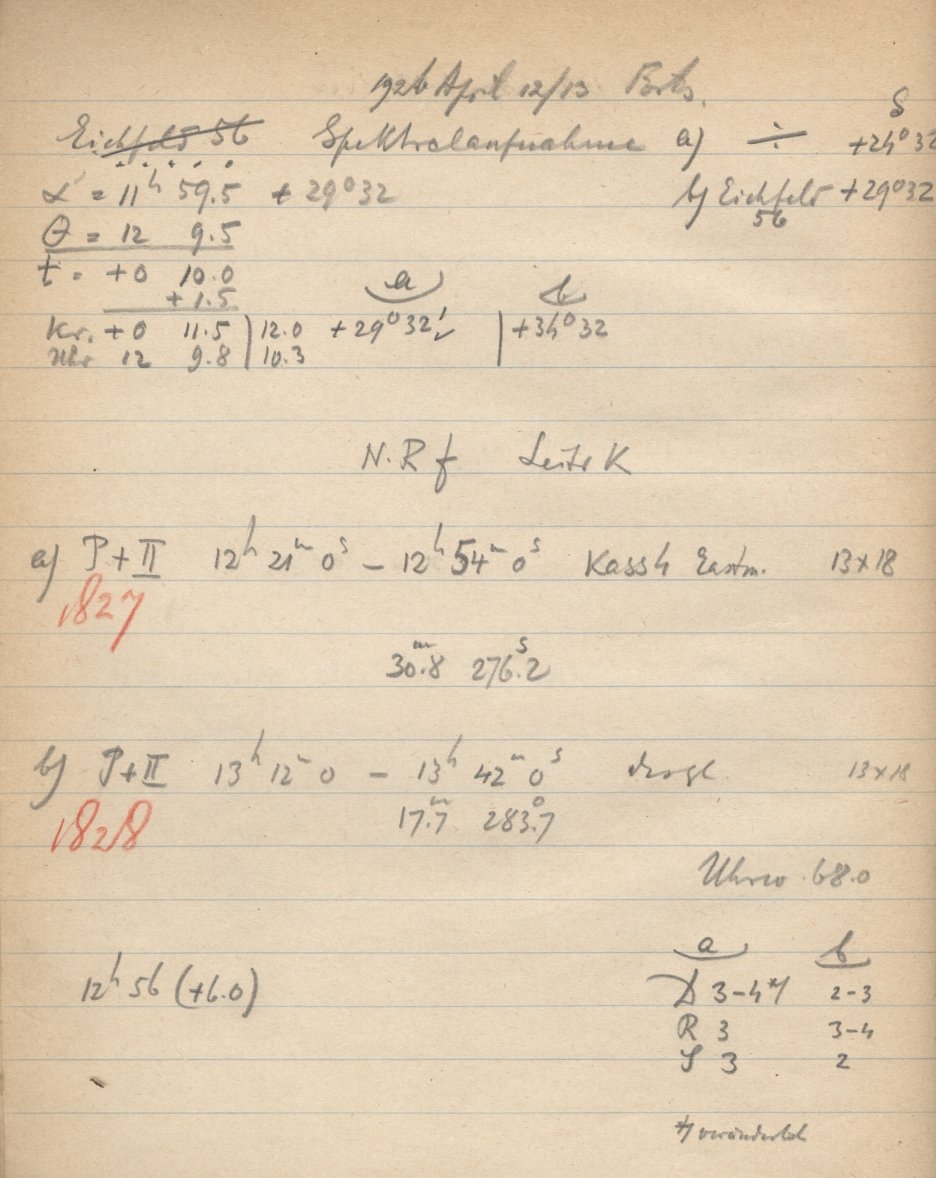 1926 April 12/13
δ
Eichfeld 56 Spektralaufnahme a) ÷ +24° 32
α = 11h 59.5 + 29° 32 b) Eichfeld +29° 32
56
θ = 12 9.5
t = +0 10.0
+ 1.5 a b
Kr. +0 11.5 12.0 +29° 32' +34° 32
Uhr 12 9.8 10.3
N.R f Leitr K
a) P + II 12h 21m 0s – 12h 54m 0s Kass 4 Eastm. 13×18
1827
30.m8 276.s2
b) P + II 13h 12m 0 – 13h 42m 0s desgl. 13×18
1828
17.m7 283.7
Uhrw. 68.0
a b
12h 56 (+6.0) D 3–4*) 2–3
R 3 3–4
S 3 2
*) veränderlich